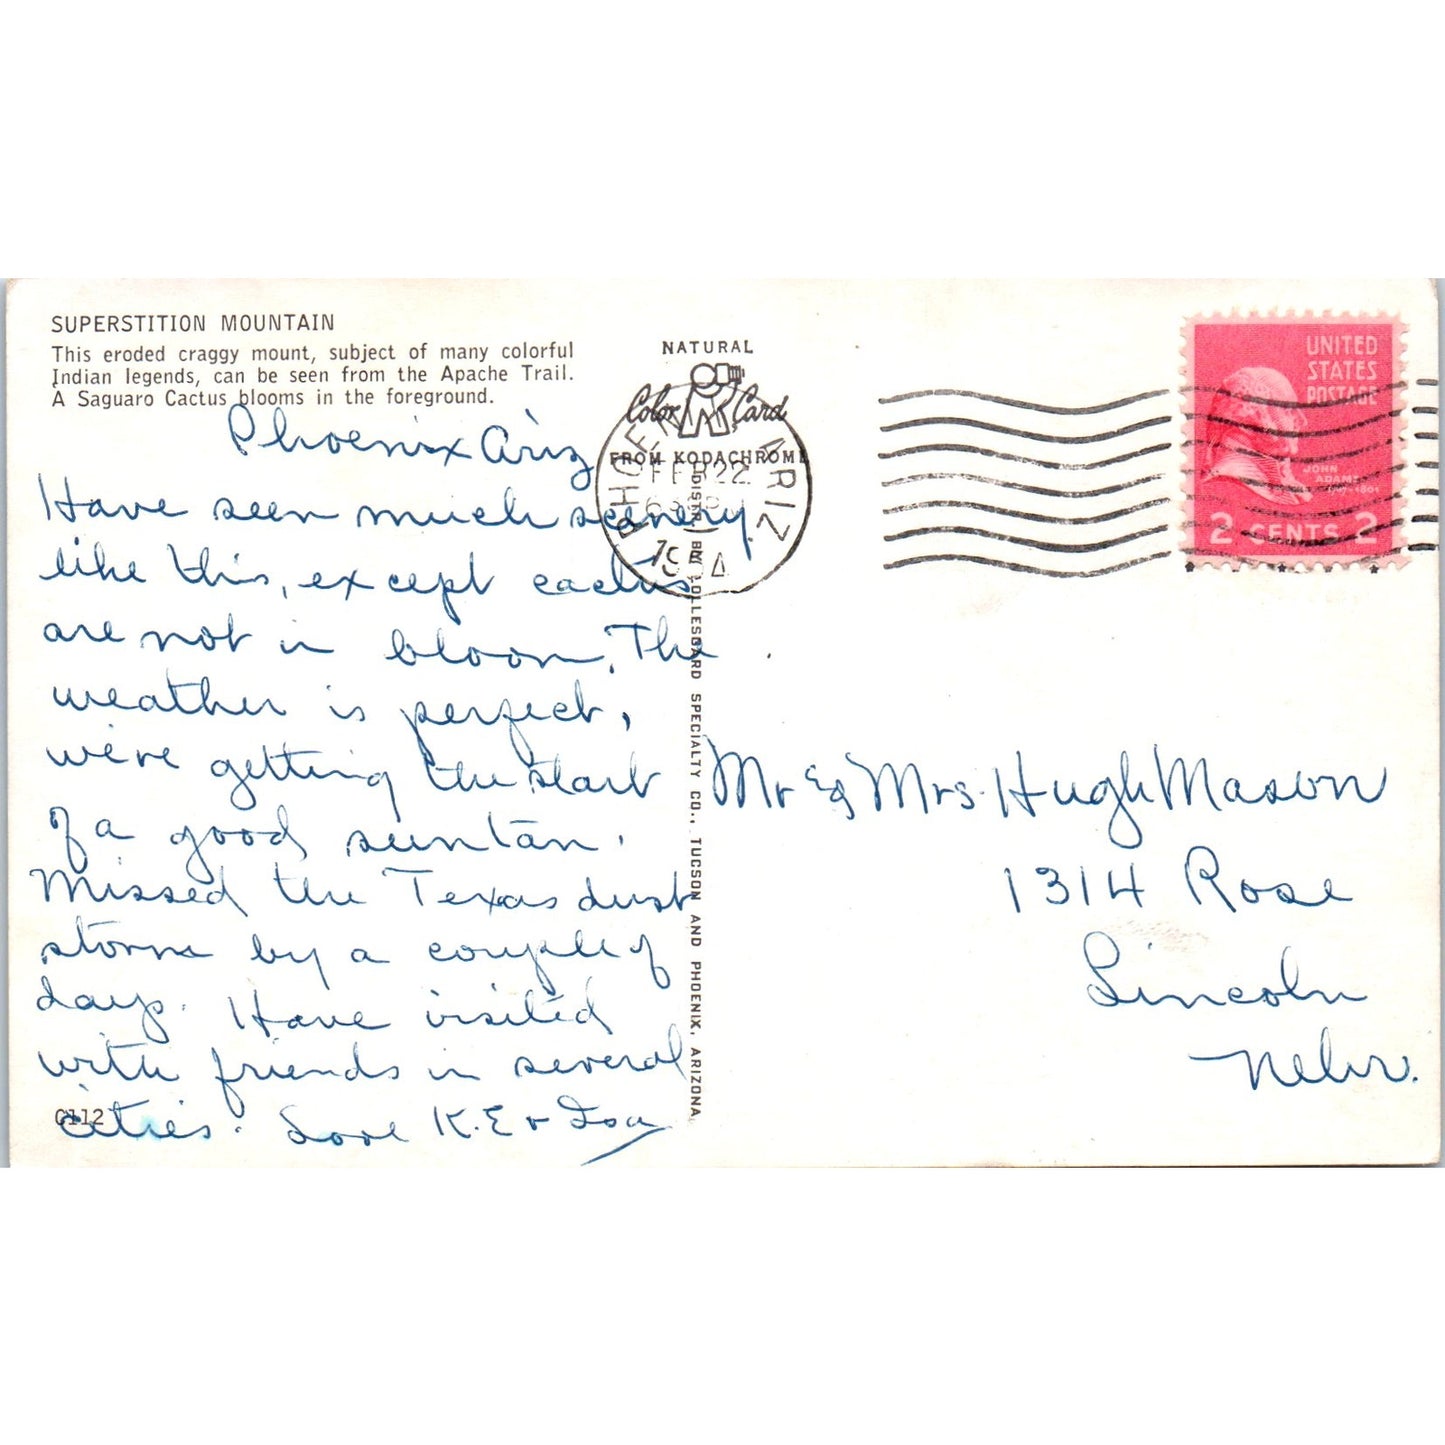 SUPERSTITION MOUNTAIN
This eroded craggy mount, subject of many colorful
Indian legends, can be seen from the Apache Trail.
A Saguaro Cactus blooms in the foreground.
Phoenix Ariz
Have seen much scenery
like this, except cactus
are not in bloom. The
weather is perfect,
we're getting the start
of a good suntan.
Missed the Texas dust
storm by a couple of
days. Have visited
with friends in several
cities. Love K.E & Isa
C112
NATURAL
Color Card
FROM KODACHROME
PHOENIX ARIZ
FEB 22
1954
DISTR. BY LOLLESGARD SPECIALTY CO., TUCSON AND PHOENIX, ARIZONA
UNITED
STATES
POSTAGE
JOHN
ADAMS
2 CENTS 2
Mr & Mrs. Hugh Mason
1314 Rose
Lincoln
Nebr.